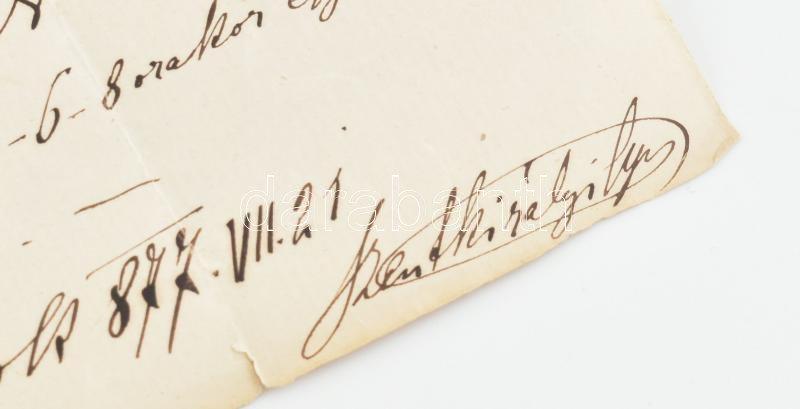 -6-8 orakor
877. VII. 21
Szentkirályi
darabanth